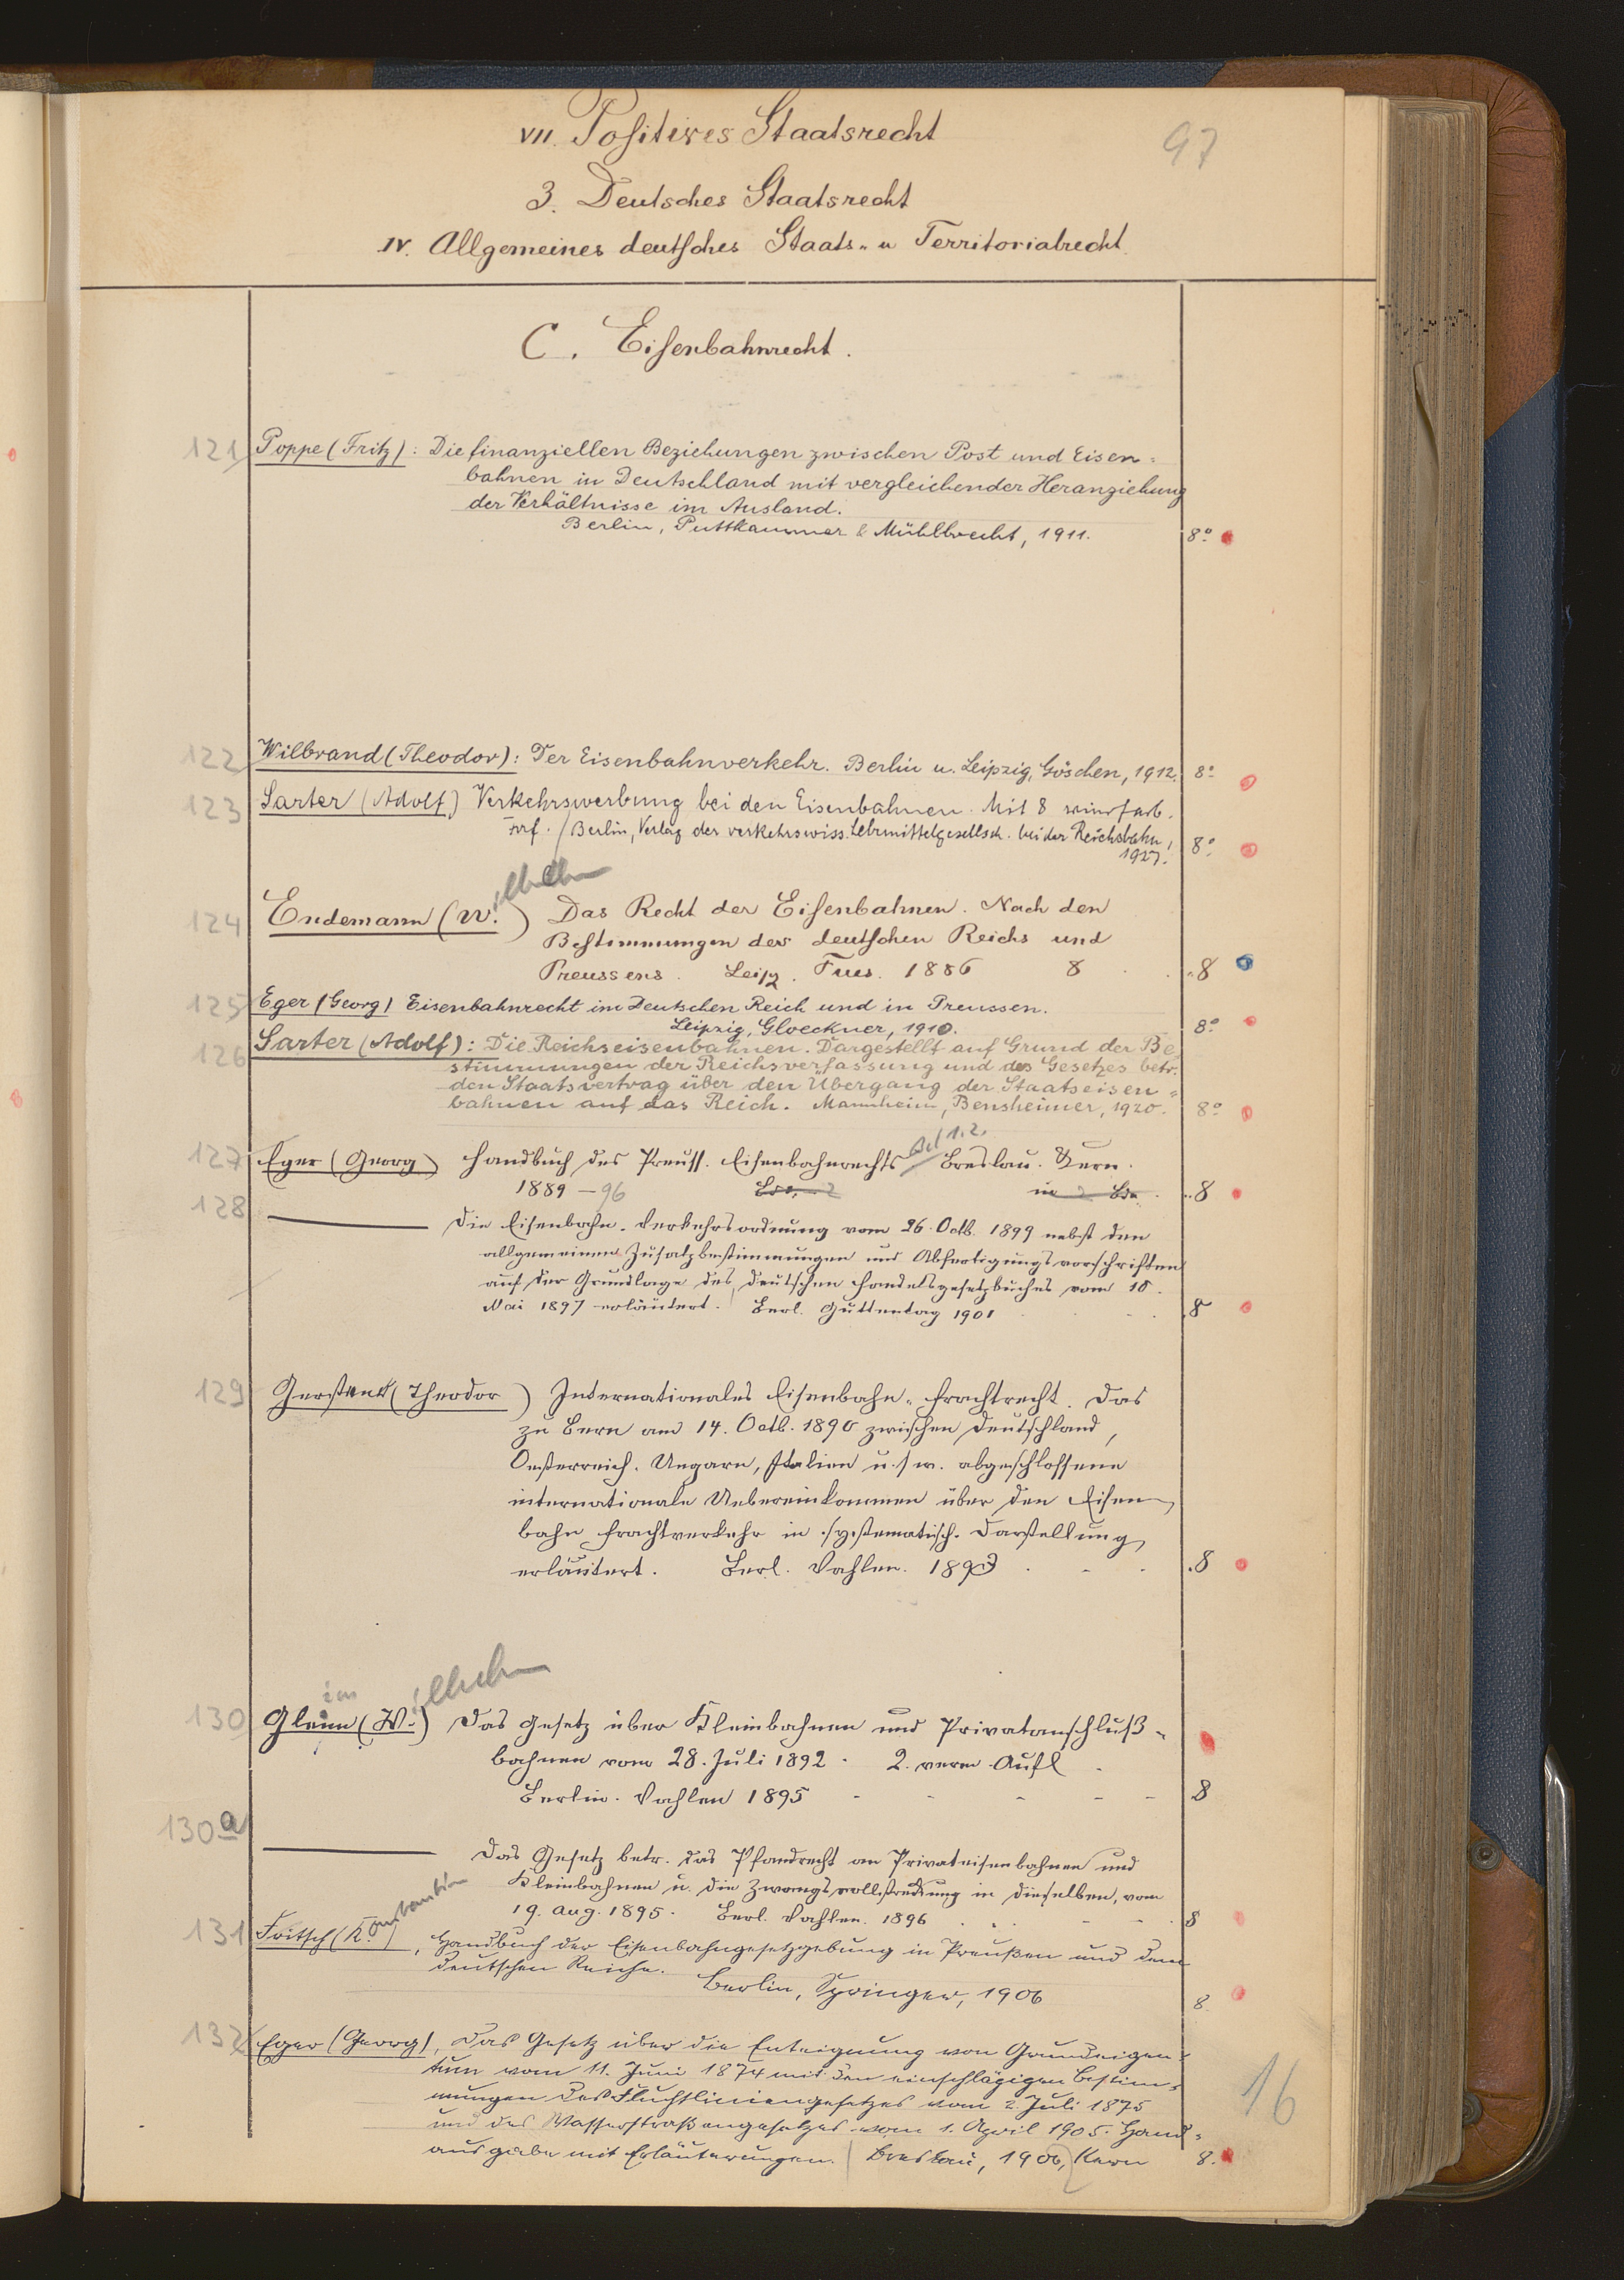 VII. Positives Staatsrecht
97
3. Deutsches Staatsrecht
IV. Allgemeines deutsches Staats- u Territorialrecht.
C. Eisenbahnrecht.
121 Poppe (Fritz): Die finanziellen Beziehungen zwischen Post und Eisen=
bahnen in Deutschland mit vergleichender Heranziehung
der Verhältnisse im Ausland.
Berlin, Puttkammer & Mühlbrecht, 1911. 8°
122 Wilbrand (Theodor): Der Eisenbahnverkehr. Berlin u. Leipzig, Göschen, 1912. 8°
123 Sarter (Adolf) Verkehrswerbung bei den Eisenbahnen. Mit 8
Berlin, Verlag der verkehrswiss. Lehrmittelgesellsch. bei der Reichsbahn, 8°
1927.
ilhelm
124 Endemann (W.) Das Recht der Eisenbahnen. Nach den
Bestimmungen des deutschen Reichs und
Preussens. Leipz. Fues. 1886 8 . . 8
125 Eger (Georg) Eisenbahnrecht im Deutschen Reich und in Preussen.
Leipzig, Gloeckner, 1910. 8°
126 Sarter (Adolf): Die Reichseisenbahnen. Dargestellt auf Grund der Be=
stimmungen der Reichsverfassung und des Gesetzes betr.
den Staatsvertrag über den Übergang der Staatseisen=
bahnen auf das Reich. Mannheim, Bensheimer, 1920. 8°
127 Eger (Georg) Handbuch des Preuss. Eisenbahnrechts Bd 1.2. Breslau. Kern.
1889-96 8
128 ——— Die Eisenbahn-Verkehrsordnung vom 26. Octb. 1899 nebst den
allgemeinen Zusatzbestimmungen und Abfertigungsvorschriften
auf der Grundlage des deutschen Handelsgesetzbuches vom 10.
Mai 1897 erläutert. Berl. Guttentag 1901 8
129 Gerstner (Theodor) Internationales Eisenbahn-frachtrecht. Das
zu Bern am 14. Octb. 1890 zwischen Deutschland,
Oesterreich-Ungarn, Italien u.s.w. abgeschlossene
internationale Uebereinkommen über den Eisen-
bahn frachtverkehr in systematisch. Darstellung
erläutert. Berl. Vahlen. 1893 . - . 8
ilhelm
130 Gleim (W.) Das Gesetz über Kleinbahnen und Privatanschluß-
bahnen vom 28. Juli 1892. 2. verm. Aufl.
Berlin. Vahlen 1895 - - - - - 8
130a ——— Das Gesetz betr. das Pfandrecht an Privateisenbahnen und
Kleinbahnen u. die Zwangsvollstreckung in dieselben, vom
19. Aug. 1895. Berl. Vahlen. 1896 8
onstantin
131 Fritsch (K.), Handbuch der Eisenbahngesetzgebung in Preußen und dem
deutschen Reiche.
Berlin, Springer, 1906 8.
132 Eger (Georg), Das Gesetz über die Enteignung von Grundeigen=
tum vom 11. Juni 1874 mit den einschlägigen Bestim=
mungen des Fluchtliniengesetzes vom 2. Juli 1875
und des Wasserstraßengesetzes vom 1. April 1905. Hand=
ausgabe mit Erläuterungen. Breslau, 1906, Kern 8.
16